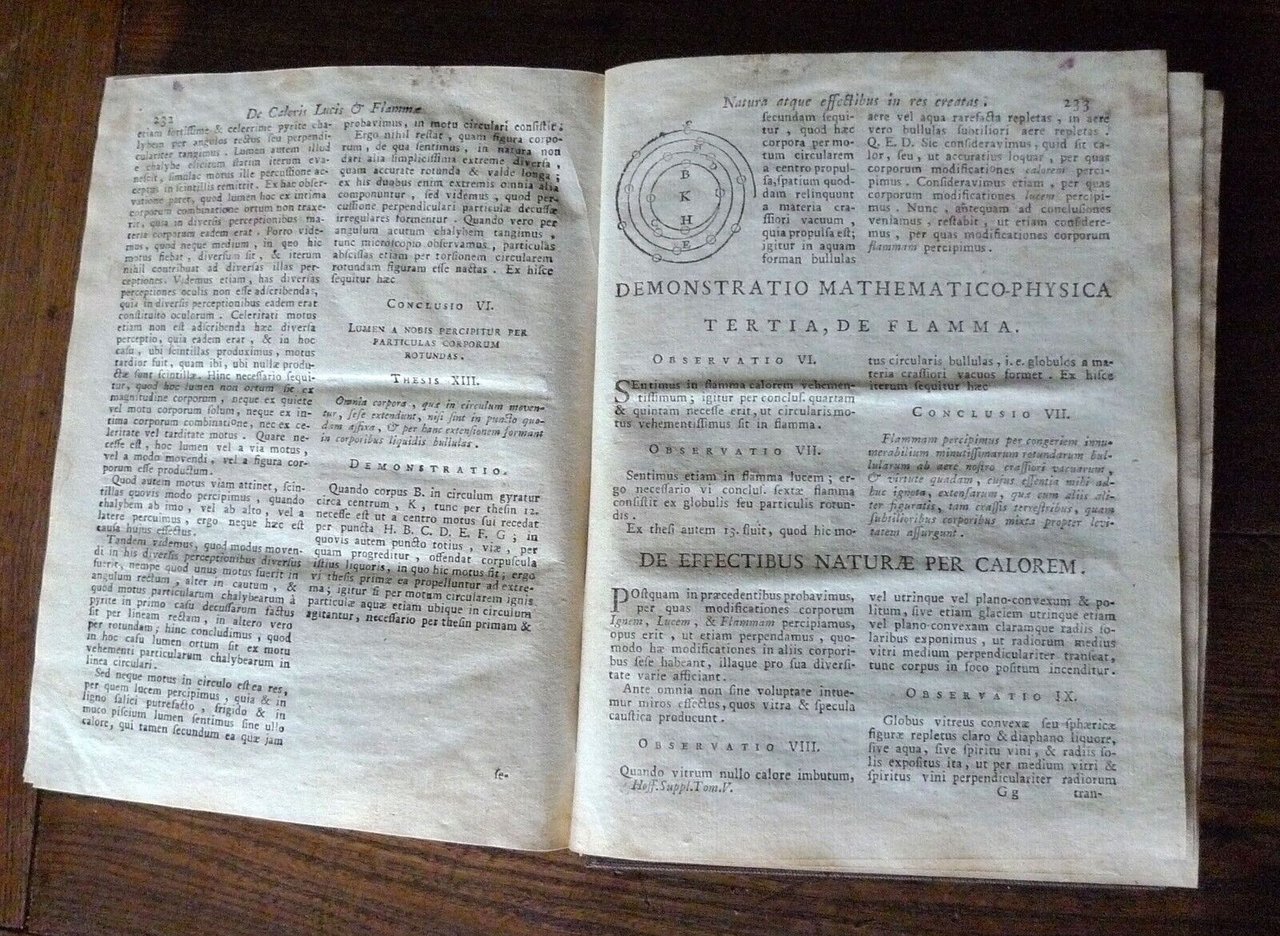 232
De Caloris Lucis & Flammæ
etiam fortissime & celerrime pyrite cha-
lybem per angulos rectos seu perpendi-
culariter tangimus. Lumen autem illud
e chalybe efficitum statim iterum eva-
nescit, simulac motus ille percussione ac-
ceptus in scintillis remittit. Ex hac obser-
vatione patet, quod lumen hoc ex intima
corporum combinatione ortum non traxe-
rit, quia in diversis perceptionibus ma-
teria corporum eadem erat. Porro vide-
mus, quod neque medium, in quo hic
motus fiebat, diversum sit, & iterum
nihil contribuat ad diversas illas per-
ceptiones. Videmus etiam, has diversas
perceptiones oculis non esse adscribendas,
quia in diversis perceptionibus eadem erat
constitutio oculorum. Celeritati motus
etiam non est adscribenda hæc diversa
perceptio, quia eadem erat, & in hoc
casu, ubi scintillas produximus, motus
tardior fuit, quam ibi, ubi nullæ produ-
ctæ sunt scintillæ. Hinc necessario sequi-
tur, quod hoc lumen non ortum sit ex
magnitudine corporum, neque ex quiete
vel motu corporum solum, neque ex in-
tima corporum combinatione, nec ex ce-
leritate vel tarditate motus. Quare ne-
cesse est, hoc lumen vel a via motus,
vel a modo movendi, vel a figura cor-
porum esse productum.
Quod autem motus viam attinet, scin-
tillas quovis modo percipimus, quando
chalybem ab imo, vel ab alto, vel a
latere percuimus, ergo neque hæc est
causa hujus effectus.
Tandem videmus, quod modus moven-
di in his diversis perceptionibus diversus
fuerit, nempe quod unus motus fuerit in
angulum rectum, alter in cautum, &
quod motus particularum chalybearum à
pyrite in primo casu decussarum factus
sit per lineam rectam, in altero vero
per rotundam; hinc concludimus, quod
in hoc casu lumen ortum sit ex motu
vehementi particularum chalybearum in
linea circulari.
Sed neque motus in circulo est ea res,
per quem lucem percipimus, quia & in
ligno salici putrefacto, frigido & in
muco piscium lumen sentimus sine ullo
calore, qui tamen secundum ea quæ jam
probavimus, in motu circulari consistit;
Ergo nihil restat, quam figura corpo-
rum, de qua sentimus, in natura non
dari alia simplicissima extreme diversa,
quam accurate rotunda & valde longa;
ex his duabus enim extremis omnia alia
componuntur, sed videmus, quod per-
cussione perpendiculari particulæ decussæ
irregulares formentur. Quando vero per
angulum acutum chalybem tangimus,
tunc microscopio observamus, particulas
abscissas etiam per torsionem circularem
rotundam figuram esse nactas. Ex hisce
sequitur hæc
CONCLUSIO VI.
LUMEN A NOBIS PERCIPITUR PER
PARTICULAS CORPORUM
ROTUNDAS.
THESIS XIII.
Omnia corpora, quæ in circulum moven-
tur, sese extendunt, nisi sint in puncto quo-
dam affixa, & per hanc extensionem formant
in corporibus liquidis bullulas.
DEMONSTRATIO.
Quando corpus B. in circulum gyratur
circa centrum, K, tunc per thesin 12.
necesse est ut a centro motus sui recedat
per puncta H. B. C. D. E. F. G; in
quovis autem puncto totius, viæ, per
quam progreditur, offendat corpuscula
istius liquoris, in quo hic motus fit; ergo
vi thesis primæ ea propelluntur ad extre-
ma; igitur si per motum circularem ignis
particulæ aquæ etiam ubique in circulum
agitantur, necessario per thesin primam &
se-
Natura atque effectibus in res creatas.
233
B
K
H
E
secundam sequi-
tur, quod hæc
corpora per mo-
tum circularem
a centro propul-
sa, spatium quod-
dam relinquont
a materia cra-
ssiori vacuum,
quia propulsa est;
igitur in aquam
forman bullulas
aere vel aqua rarefacta repletas, in aere
vero bullulas subtiliori aere repletas.
Q. E. D. Sic consideravimus, quid sit ca-
lor, seu, ut accuratius loquar, per quas
corporum modificationes calorem perci-
pimus. Consideravimus etiam, per quas
corporum modificationes lucem percipi-
mus. Nunc, antequam ad conclusiones
veniamus, restabit, ut etiam considere-
mus, per quas modificationes corporum
flammam percipimus.
DEMONSTRATIO MATHEMATICO-PHYSICA
TERTIA, DE FLAMMA.
OBSERVATIO VI.
SEntimus in flamma calorem vehemen-
tissimum; igitur per concluſ. quartam
& quintam necesse erit, ut circularis mo-
tus vehementissimus sit in flamma.
OBSERVATIO VII.
Sentimus etiam in flamma lucem; er-
go necessario vi concluſ. sextæ flamma
consistit ex globulis seu particulis rotun-
dis.
Ex thesi autem 13. fluit, quod hic mo-
tus circularis bullulas, i. e. globulos a ma-
teria crassiori vacuos formet. Ex hisce
iterum sequitur hæc
CONCLUSIO VII.
Flammam percipimus per congeriem innu-
merabilium minutissimarum rotundarum bul-
lularum ab aere nostro crassiori vacuarum,
& virtute quadam, cujus essentia mihi ad-
huc ignota, extensarum, quæ cum aliis ali-
ter figuratis, tam crassis terrestribus, quam
subtilioribus corporibus mixta propter levi-
tatem assurgunt.
DE EFFECTIBUS NATURÆ PER CALOREM.
POstquam in præcedentibus probavimus,
per quas modificationes corporum
Ignem, Lucem, & Flammam percipiamus,
opus erit, ut etiam perpendamus, quo-
modo hæ modificationes in aliis corpori-
bus sese habeant, illaque pro sua diversi-
tate varie afficiant.
Ante omnia non sine voluptate intue-
mur miros effectus, quos vitra & specula
caustica producunt.
OBSERVATIO VIII.
Quando vitrum nullo calore imbutum,
Hoff. Suppl. Tom. V.
vel utrinque vel plano-convexum & po-
litum, sive etiam glaciem utrinque etiam
vel plano-convexam claramque radiis so-
laribus exponimus, ut radiorum medius
vitri medium perpendiculariter transeat,
tunc corpus in foco positum incenditur.
OBSERVATIO IX.
Globus vitreus convexæ seu sphæricæ
figuræ repletus claro & diaphano liquore,
sive aqua, sive spiritu vini, & radiis so-
lis expositus ita, ut per medium vitri &
spiritus vini perpendiculariter radiorum
Gg
tran-